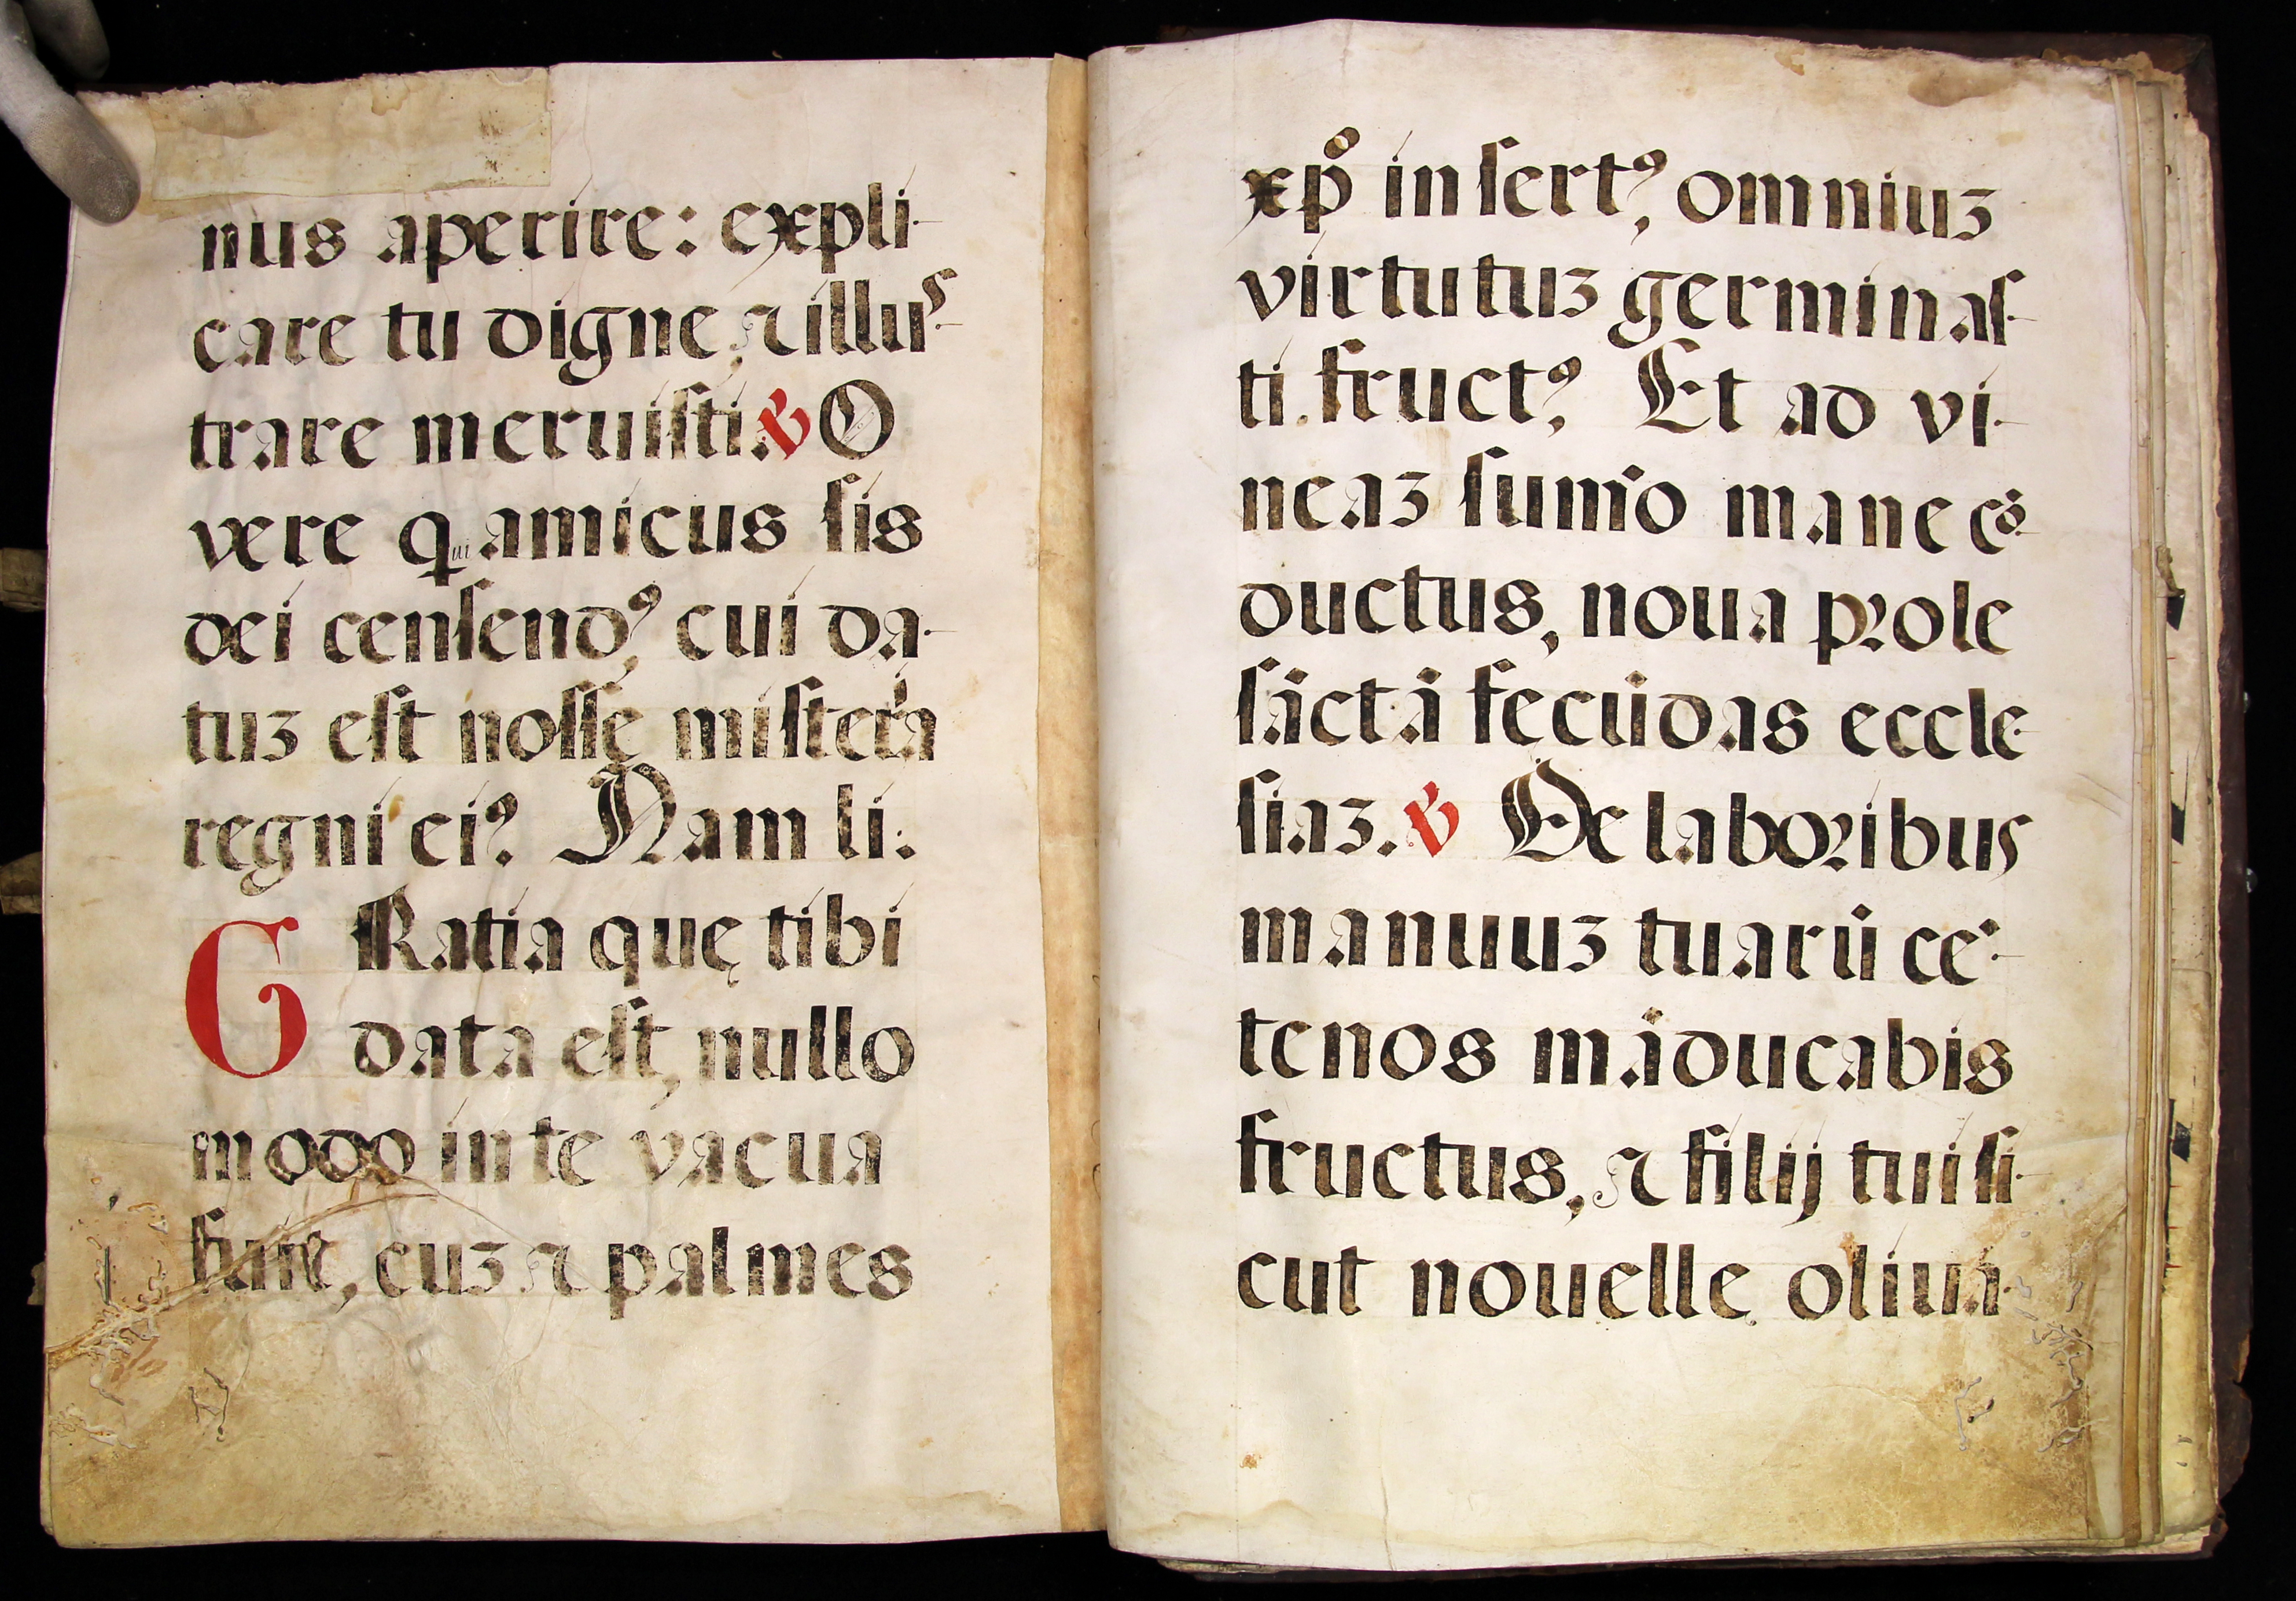 nus aperire: expli-
care tu digne, ⁊ illuſ-
trare meruiſti. ℣ O
vere qui amicus ſis
dei cenſendꝰ, cui da-
tuꝫ eſt noſſe miſteria
regni eiꝰ. Nam li.
GRatia quę tibi
data eſt, nullo
modo in te vacua
fuit, cuꝫ ⁊ palmes
xpo᷒ inſertꝰ, omniuꝫ
virtutuꝫ germinaſ-
ti fructꝰ. Et ad vi-
neaꝫ sum̄o mane cō-
ductus, noua prole
ſāctā fecūdas eccle-
ſiaꝫ. ℣ De laboribus
manuuꝫ tuarū ce-
tenos māducabis
fructus, ⁊ filij tui ſi-
cut nouellę oliua-